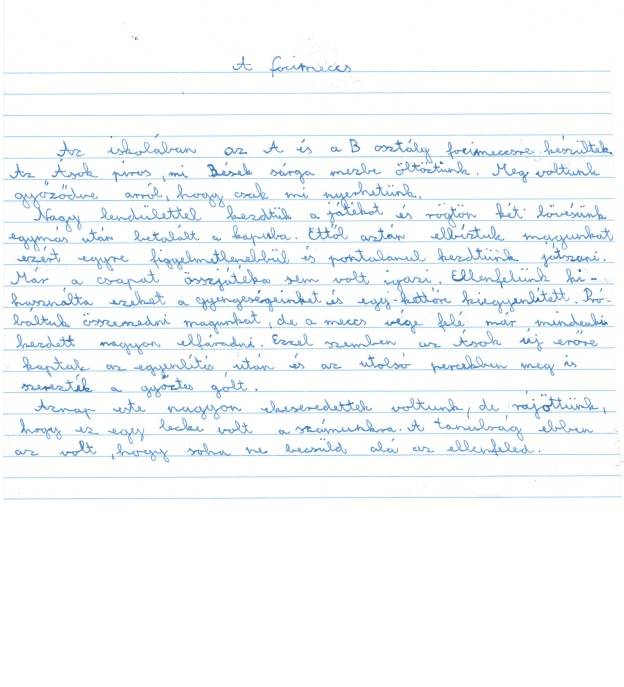 A focimeccs
Az iskolában az A és a B osztály focimeccsre készültek.
Az Ások piros, mi Bések sárga mezbe öltöztünk. Meg voltunk
győződve arról, hogy csak mi nyerhetünk.
Nagy lendülettel kezdtük a játékot és rögtön két lövésünk
egymás után betalált a kapuba. Ettől aztán elbíztuk magunkat
ezért egyre figyelmetlenebbül és pontatlanul kezdtünk játszani.
Már a csapat összjátéka sem volt igazi. Ellenfelünk ki-
használta ezeket a gyengeségeinket és egy-kettőre kiegyenlített. Pró-
báltuk összeszedni magunkat, de a meccs vége felé már mindenki
kezdett nagyon elfáradni. Ezzel szemben az Ások új erőre
kaptak az egyenlítés után és az utolsó percekben meg is
szerezték a győztes gólt.
Aznap este nagyon elkeseredettek voltunk, de rájöttünk,
hogy ez egy lecke volt a számunkra. A tanulság ebben
az volt, hogy soha ne becsüld alá az ellenfeled.